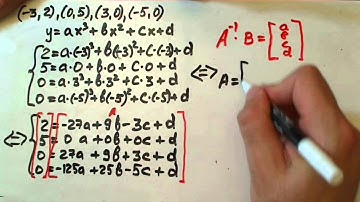 (-3, 2), (0,5), (3,0), (-5,0)
y = ax³ + bx² + cx + d
2 = a·(-3)³ + b(-3)² + c·(-3) + d
5 = a·0 + b·0 + c·0 + d
0 = a·3³ + b·3² + c·3 + d
0 = a(-5)³ + b(-5)² + c·(-5) + d
A
⇔ 2 = -27a + 9b - 3c + d
5 = 0a + 0b + 0c + d
0 = 27a + 9b + 3c + d
0 = -125a + 25b - 5c + d
A⁻¹ B = [a
b
c
d]
⇔ A = [